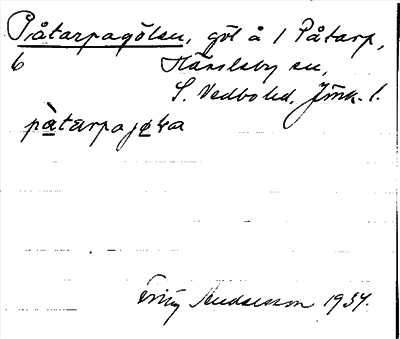 Påtarpagölen, göl å 1 Påtarp,
6 Hässleby sn,
S. Vedbo hd, Jönk. l.
pàtarpajøka
Erik Andersson 1934.